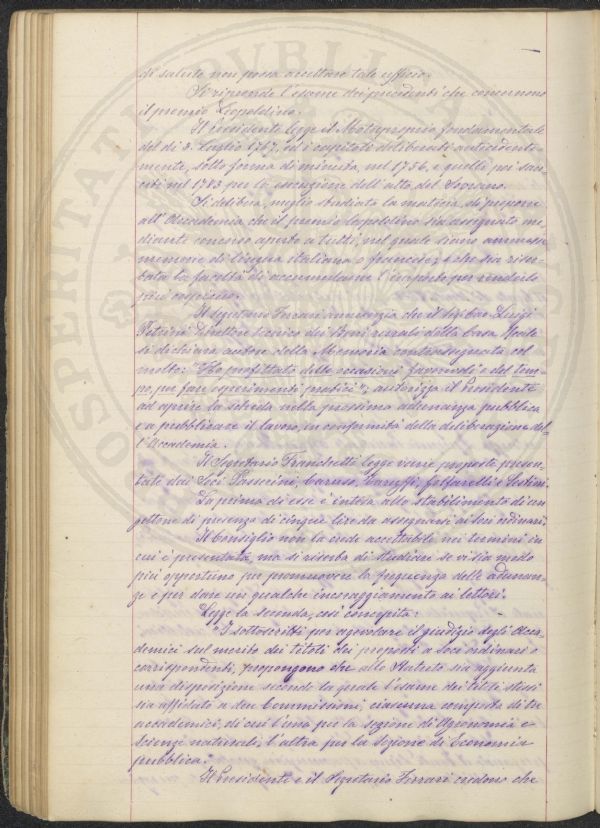 di salute non possa accettare tale ufficio.
Si riprende l'esame dei precedenti che concernono
il premio Leopoldino.
Il Presidente legge il Motuproprio fondamentale
del dì 3. Luglio 1767, ed i capitoli deliberati antecedente-
mente, sotto forma di minuta, nel 1756, e quelli poi san-
citi nel 1783 per la esecuzione dell'atto del Sovrano.
Si delibera, meglio studiata la materia, di proporre
all'Accademia che il premio leopoldino sia assegnato me-
diante concorso aperto a tutti, nel quale siano ammesse
memorie di lingua italiana o francese; e che sia riser-
bata la facoltà di accumularne l'importo per renderlo
più copioso.
Il Segretario Ferrari annunzia che il Sig. Luigi
Direttore tecnico dei Beni rurali della Casa Reale
si dichiara autore della Memoria contrassegnata col
motto: "Ho profittato delle occasioni favorevoli e del tem-
po, per fare esperimenti pratici"; autorizza il Presidente
ad aprire la scheda nella prossima adunanza pubblica
e a pubblicare il lavoro, in conformità della deliberazione del-
l'Accademia.
Il Segretario Franchetti legge varie proposte presen-
tate dai Soci Passerini, Caruso, e Sestini.
La prima di esse è intesa allo stabilimento di un
gettone di presenza di cinque lire da assegnarsi ai Soci ordinari.
Il Consiglio non la crede accettabile nei termini in
cui è presentata, ma si riserba di studiare se vi sia modo
più opportuno per promuovere la frequenza delle adunan-
ze e per dare un qualche incoraggiamento ai lettori.
Legge la seconda, così concepita:
"I sottoscritti per agevolare il giudizio degli Acca-
demici sul merito dei titoli dei proposti a soci ordinari e
corrispondenti, propongono che allo Statuto sia aggiunta
una disposizione secondo la quale l'esame dei titoli stessi
sia affidato a due Commissioni, ciascuna composta di tre
accademici, di cui l'una per la sezione di Agronomia e
Scienze naturali, l'altra per la Sezione di Economia
pubblica."
Il Presidente e il Segretario Ferrari credono che